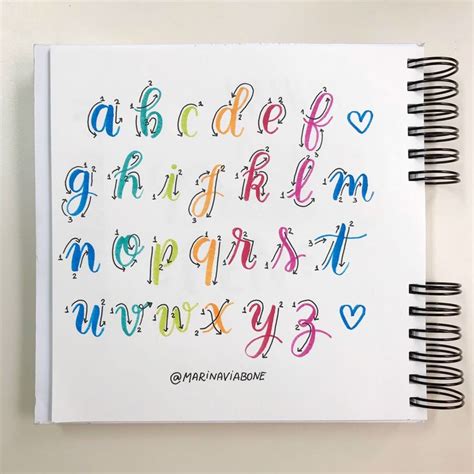 a b c d e f
g h i j k l m
n o p q r s t
u v w x y z
@MARINAVIABONE